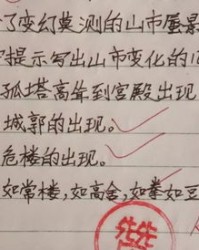 了变幻莫测的山市蜃景
提示写出山市变化的
孤塔高耸到宫殿出现
城郭的出现。
危楼的出现。
如常楼，如高舍，如拳如豆